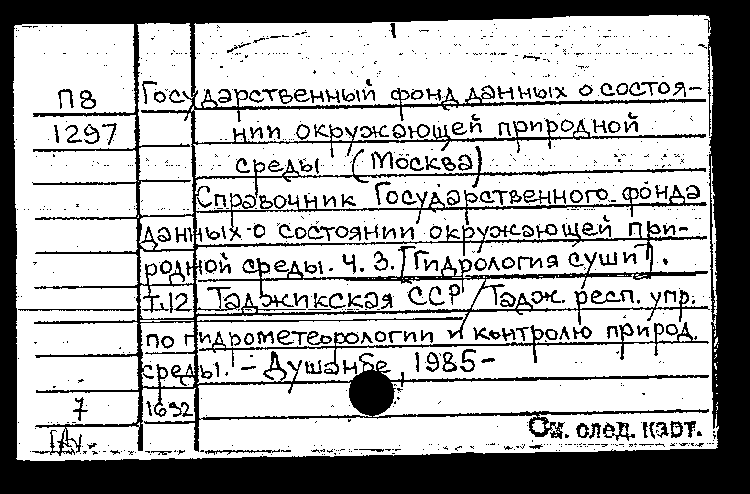 П8 Государственный фонд данных о состоя-
1297 нии окружающей природной
среды (Москва)
Справочник Государственного фонда
данных о состоянии окружающей при-
родной среды. Ч. 3. [Гидрология суши].
Т.12 Таджикская ССР / Тадж. респ. упр.
по гидрометеорологии и контролю природ.
среды. – Душанбе, 1985 –
7 1632
См. след. карт.